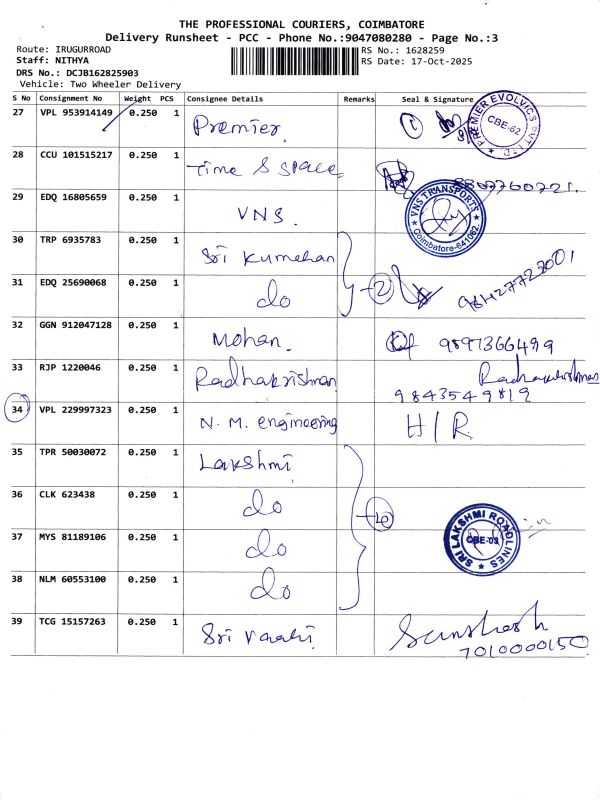 THE PROFESSIONAL COURIERS, COIMBATORE
Delivery Runsheet - PCC - Phone No.:9047080280 - Page No.:3
Route: IRUGURROAD
RS No.: 1628259
Staff: NITHYA
RS Date: 17-Oct-2025
DRS No.: DCJB162825903
Vehicle: Two Wheeler Delivery
S No Consignment No Weight PCS Consignee Details Remarks Seal & Signature
27 VPL 953914149 0.250 1 Premier. PREMIER EVOLVICS PVT LTD CBE-62
28 CCU 101515217 0.250 1 Time & space 8807760721.
29 EDQ 16805659 0.250 1 VNS. VNS TRANSPORTS Coimbatore-641062
30 TRP 6935783 0.250 1 Sri Kumaran
31 EDQ 25690068 0.250 1 do 2 98427723001
32 GGN 912047128 0.250 1 Mohan. 9897366499
33 RJP 1220046 0.250 1 Radhakrishnan Radhakrishnan
9843549819
34 VPL 229997323 0.250 1 N. M. engineering H/R
35 TPR 50030072 0.250 1 Lakshmi
36 CLK 623438 0.250 1 do
37 MYS 81189106 0.250 1 do SRI LAKSHMI ROADLINES CBE-03
38 NLM 60553100 0.250 1 do
39 TCG 15157263 0.250 1 Sri Varahi
7010000150